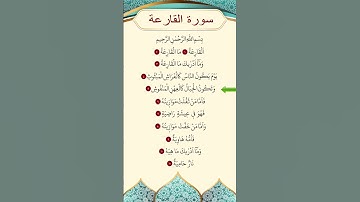 سورة القارعة
بِسْمِ اللَّهِ الرَّحْمَٰنِ الرَّحِيمِ
الْقَارِعَةُ ۝ مَا الْقَارِعَةُ ۝
وَمَا أَدْرَاكَ مَا الْقَارِعَةُ ۝
يَوْمَ يَكُونُ النَّاسُ كَالْفَرَاشِ الْمَبْثُوثِ ۝
وَتَكُونُ الْجِبَالُ كَالْعِهْنِ الْمَنْفُوشِ ۝
فَأَمَّا مَنْ ثَقُلَتْ مَوَازِينُهُ ۝
فَهُوَ فِي عِيشَةٍ رَاضِيَةٍ ۝
وَأَمَّا مَنْ خَفَّتْ مَوَازِينُهُ ۝
فَأُمُّهُ هَاوِيَةٌ ۝
وَمَا أَدْرَاكَ مَا هِيَهْ ۝
نَارٌ حَامِيَةٌ ۝